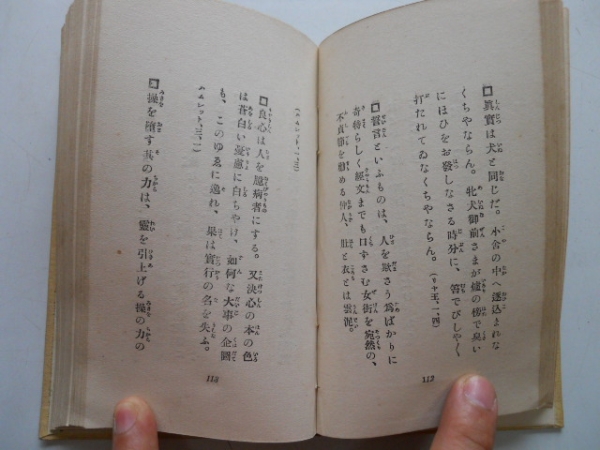 眞實は犬と同じだ。小舍の中へ逐込まれな
くちやならん。牝犬御前さまが爐の傍で臭い
にほひをお發しなさる時分に、笞でびしやく
打たれてゐなくちやならん。(リヤ王、一、四)
誓言といふものは、人を欺さう爲ばかりに
奇特らしく經文までも口ずさむ女街を宛然の、
不貞節を勸める仲人、肚と衣とは雲泥。
(ハムレット、一、三)
良心は人を臆病者にする。又決心の本の色
は蒼白い憂慮に白ちやけ、如何な大事の企圖
も、このゆゑに逸れ、果は實行の名を失ふ。
(ハムレット、三、一)
操を墮す其の力は、靈を引上げる操の力の
112
113